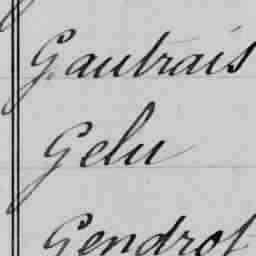 Gautrais
Gelu
Gendrot